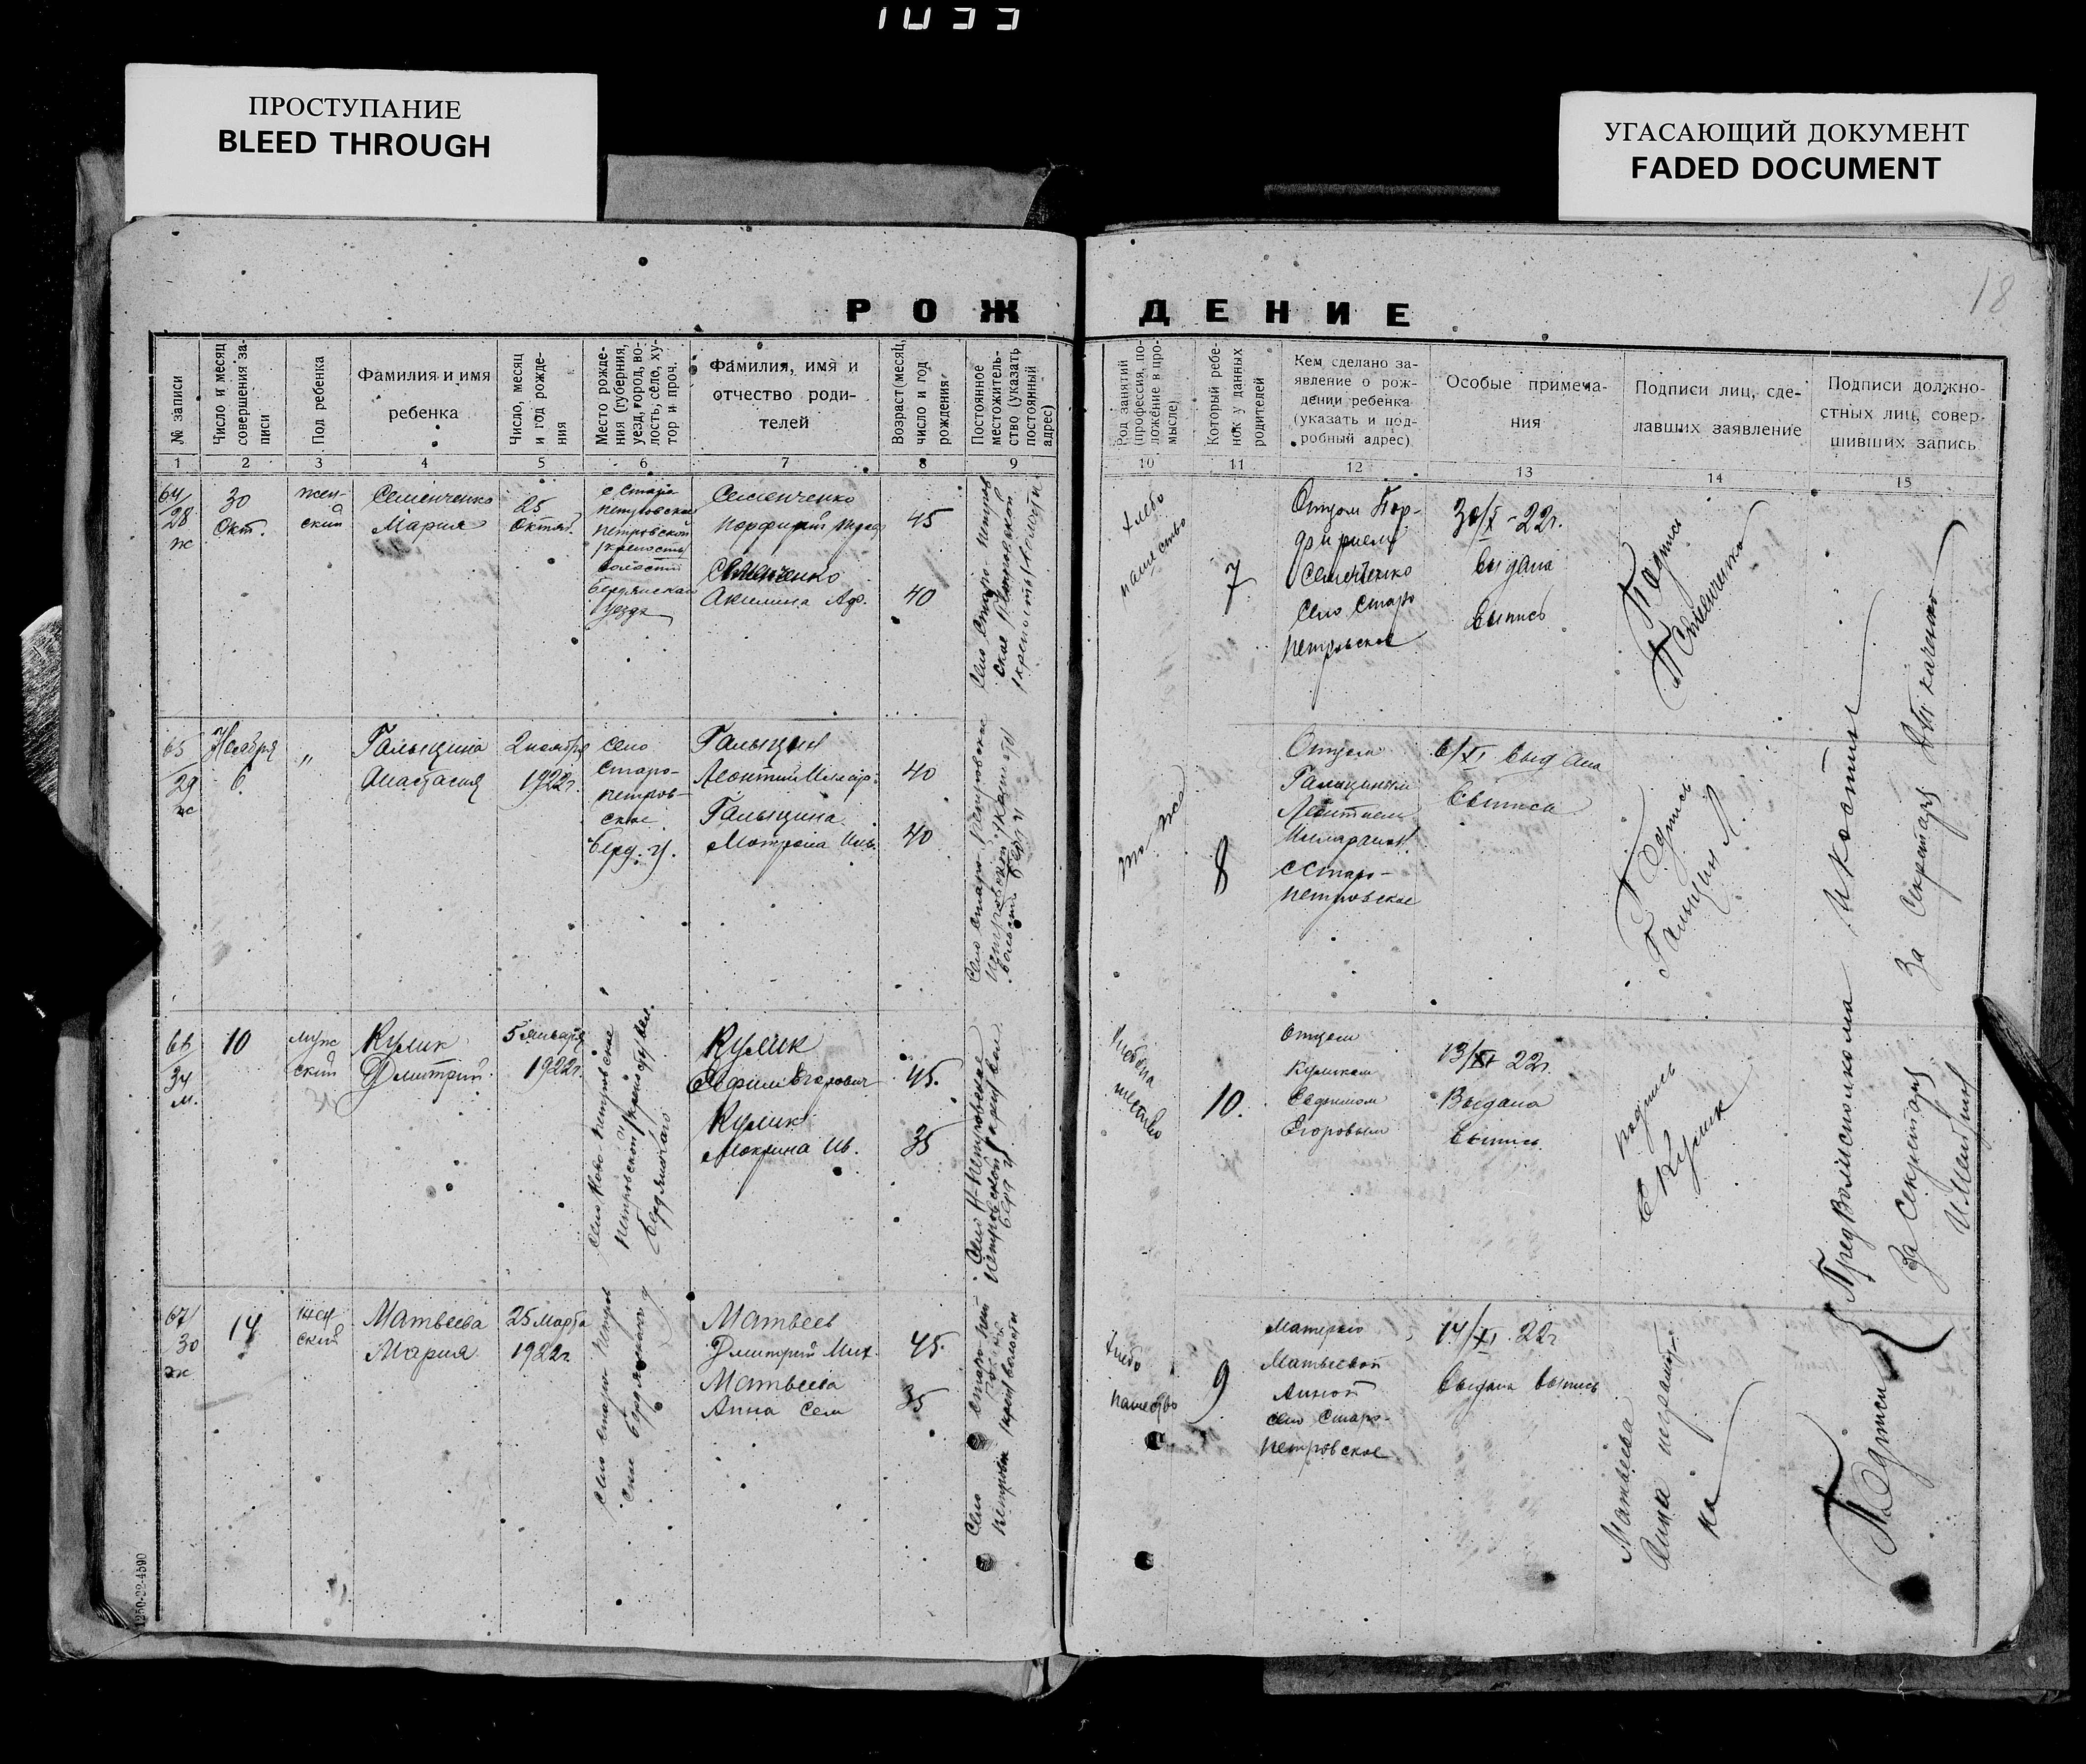 1033
ПРОСТУПАНИЕ
BLEED THROUGH
УГАСАЮЩИЙ ДОКУМЕНТ
FADED DOCUMENT
18
РОЖДЕНИЕ
№ записи
Число и месяц совершения за-
писи
Пол ребенка
Фамилия и имя
ребенка
Число, месяц
и год рожде-
ния
Место рожде-
ния (губерния,
уезд, город, во-
лость, село, ху-
тор и проч.
Фамилия, имя и
отчество роди-
телей
Возраст (месяц,
число и год
рождения
Постоянное
местожитель-
ство (указать
постоянный
адрес)
Род занятий
(профессия, по-
ложение в про-
мысле)
Который ребе-
нок у данных
родителей
Кем сделано за-
явление о рож-
дении ребенка
(указать и под-
робный адрес)
Особые примеча-
ния
Подписи лиц, сде-
лавших заявление
Подписи должно-
стных лиц, совер-
шивших запись
1 2 3 4 5 6 7 8 9 10 11 12 13 14 15
64/
28
ж
30
Окт.
жен-
ский
Семенченко
Мария
25
Октяб.
с Старо
петровское
петровской
/крепость/
волости
Бердянская
уезда
Семенченко
Порфирий
45
Семенченко
Акилина Аф.
40
Село Старо петров
ское петровской
/крепость/ волости
хлебо
пашество
7
Отцом Пор-
фирием
Семенченко
Село Старо
петровское
30/X - 22г.
выдана
выпись
Подпись
П Семенченко
65/
29
ж
Ноября
6
"
Галицина
Анастасия
2 ноября
1922г.
село
Старо-
петров-
ское
берд. у.
Галицын
Леонтий
40
Галицина
Мотрона
40
Село старо петровское
петровской
волости берд у
то же
8
Отцом
Галициным
Леонтием
с Старо-
петровское
6/XI выдана
выпись
Подпись
Галицин Л.
66/
34
м.
10
муж
ский
Кулик
Дмитрий
5 января
1922г.
Село Ново петровское
петровской /крепость/ вол.
Бердянского
Кулик
Евфим Егорович
45.
Кулик
Мокрина Ив.
35
Село Н-Петровское
петровской
берд у
хлебопа
шество
10.
Отцом
Куликом
Евфимом
Егоровым
13/XI 22г.
Выдана
выпись
подпись
Е Кулик
67/
30
ж
14
жен
ский
Матвеева
Мария
25 Марта
1922г.
Село старо Петров
ское Бердянского у
Матвеев
Дмитрий Мих.
45.
Матвеева
Анна Сем
35
Село Старо-пет
петровск волости
хлебо
пашество
9
Матерью
Матвеевой
Анной
село Старо-
петровское
14/XI. 22г
выдана выпись
Матвеева
Анна неграмот-
на
Подписи {
Предволисполкома Икостин
За Секретаря
За Секретаря
1250-22-4590